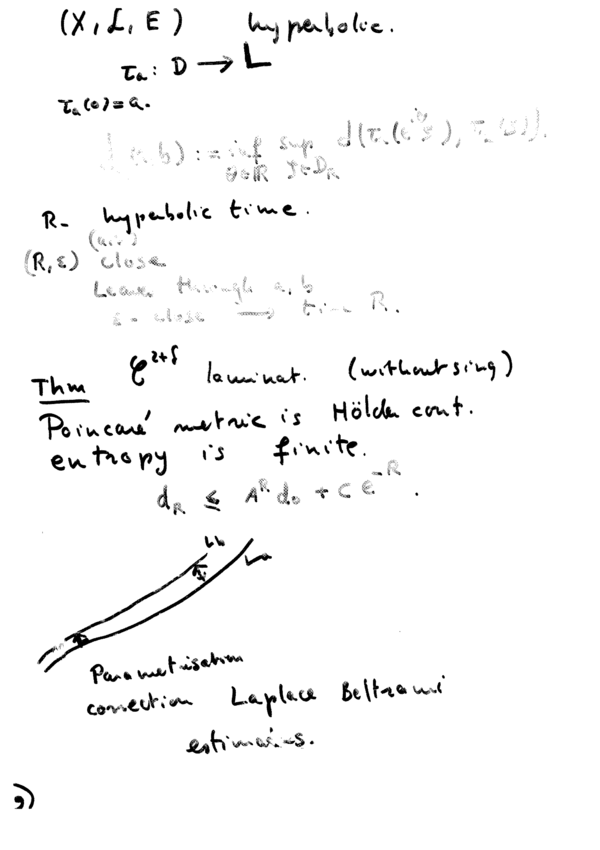 (X, L, E) hyperbolic.
τₐ : D → L
τₐ(0) = a.
(a, b) := inf sup d(τₐ(e^{iθ}ξ), τ (ξ)).
θ∈ℝ ξ∈D_R
R - hyperbolic time.
(R, ε) close
Leaves through a, b
ε - close → time R.
Thm C^{2+δ} laminat. (without sing)
Poincaré metric is Hölder cont.
entropy is finite.
d_R ≤ A^R d₀ + C e^{-R}.
L_b
L_a
Parametrisation
correction Laplace Beltrami
estimates.
9)